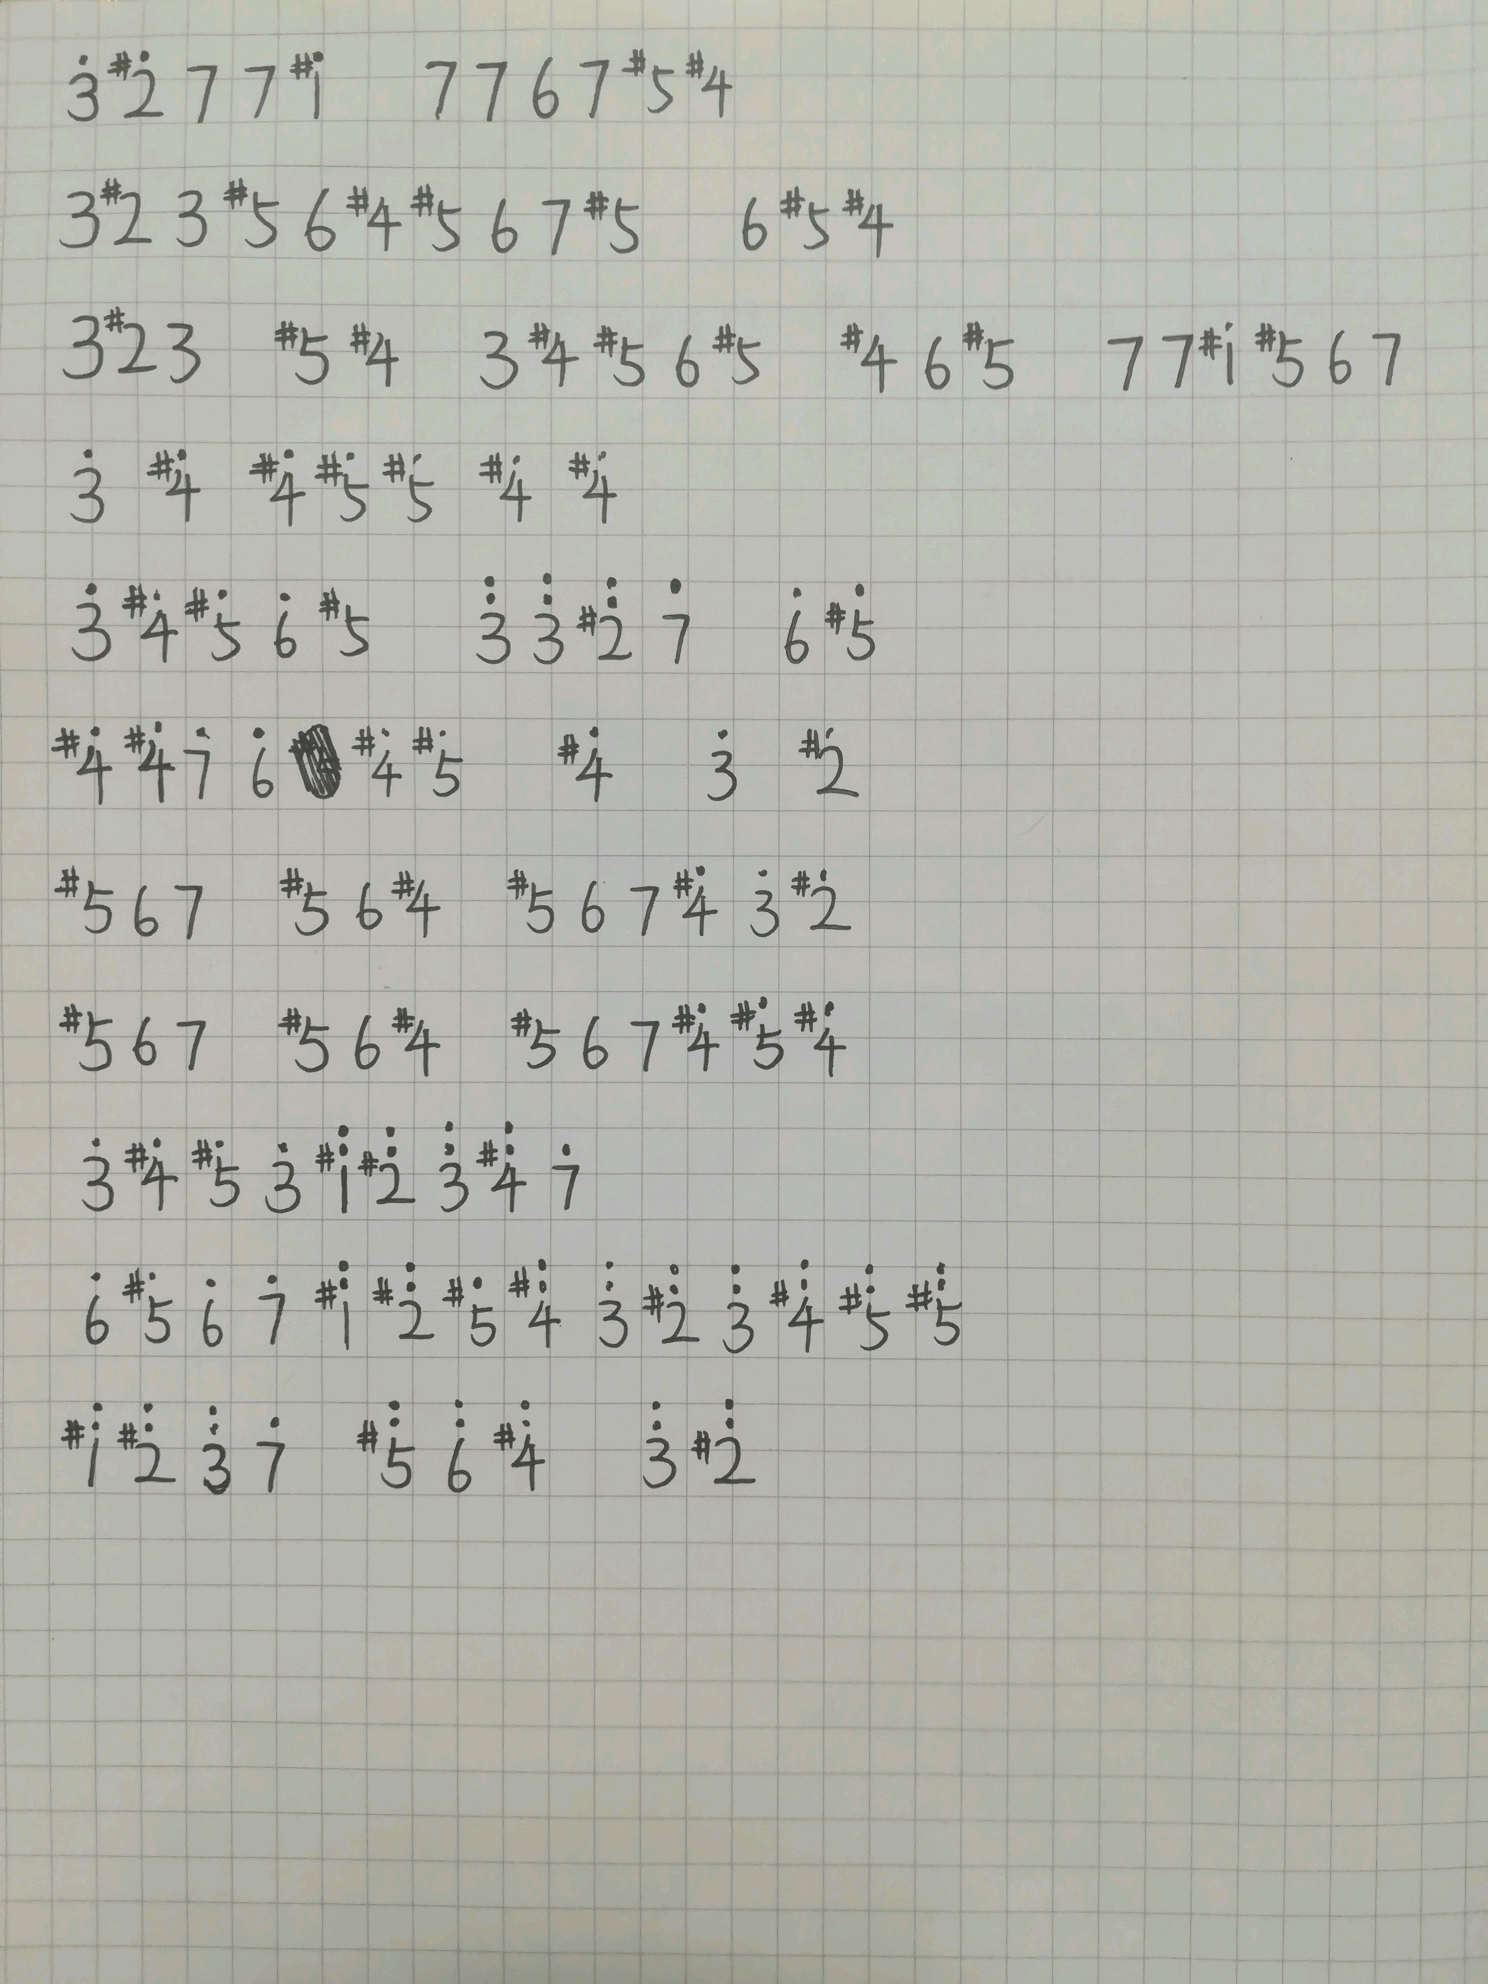 3̇ #2̇ 7 7 #1̇ 7 7 6 7 #5 #4
3 #2 3 #5 6 #4 #5 6 7 #5 6 #5 #4
3 #2 3 #5 #4 3 #4 #5 6 #5 #4 6 #5 7 7 #1̇ #5 6 7
3̇ #4̇ #4̇ #5̇ #5̇ #4̇ #4̇
3̇ #4̇ #5̇ 6̇ #5 3̈ 3̈ #2̈ 7̇ 6̇ #5̇
#4̇ #4̇ 7̇ 6̇ #4̇ #5̇ #4̇ 3̇ #2̇
#5 6 7 #5 6 #4 #5 6 7 #4̇ 3̇ #2̇
#5 6 7 #5 6 #4 #5 6 7 #4̇ #5̇ #4̇
3̇ #4̇ #5̇ 3̇ #1̈ #2̈ 3̈ #4̈ 7̇
6̇ #5̇ 6̇ 7̇ #1̈ #2̈ #5̇ #4̈ 3̈ #2̈ 3̈ #4̈ #5̈ #5̈
#1̈ #2̈ 3̈ 7̇ #5̈ 6̈ #4̈ 3̈ #2̈